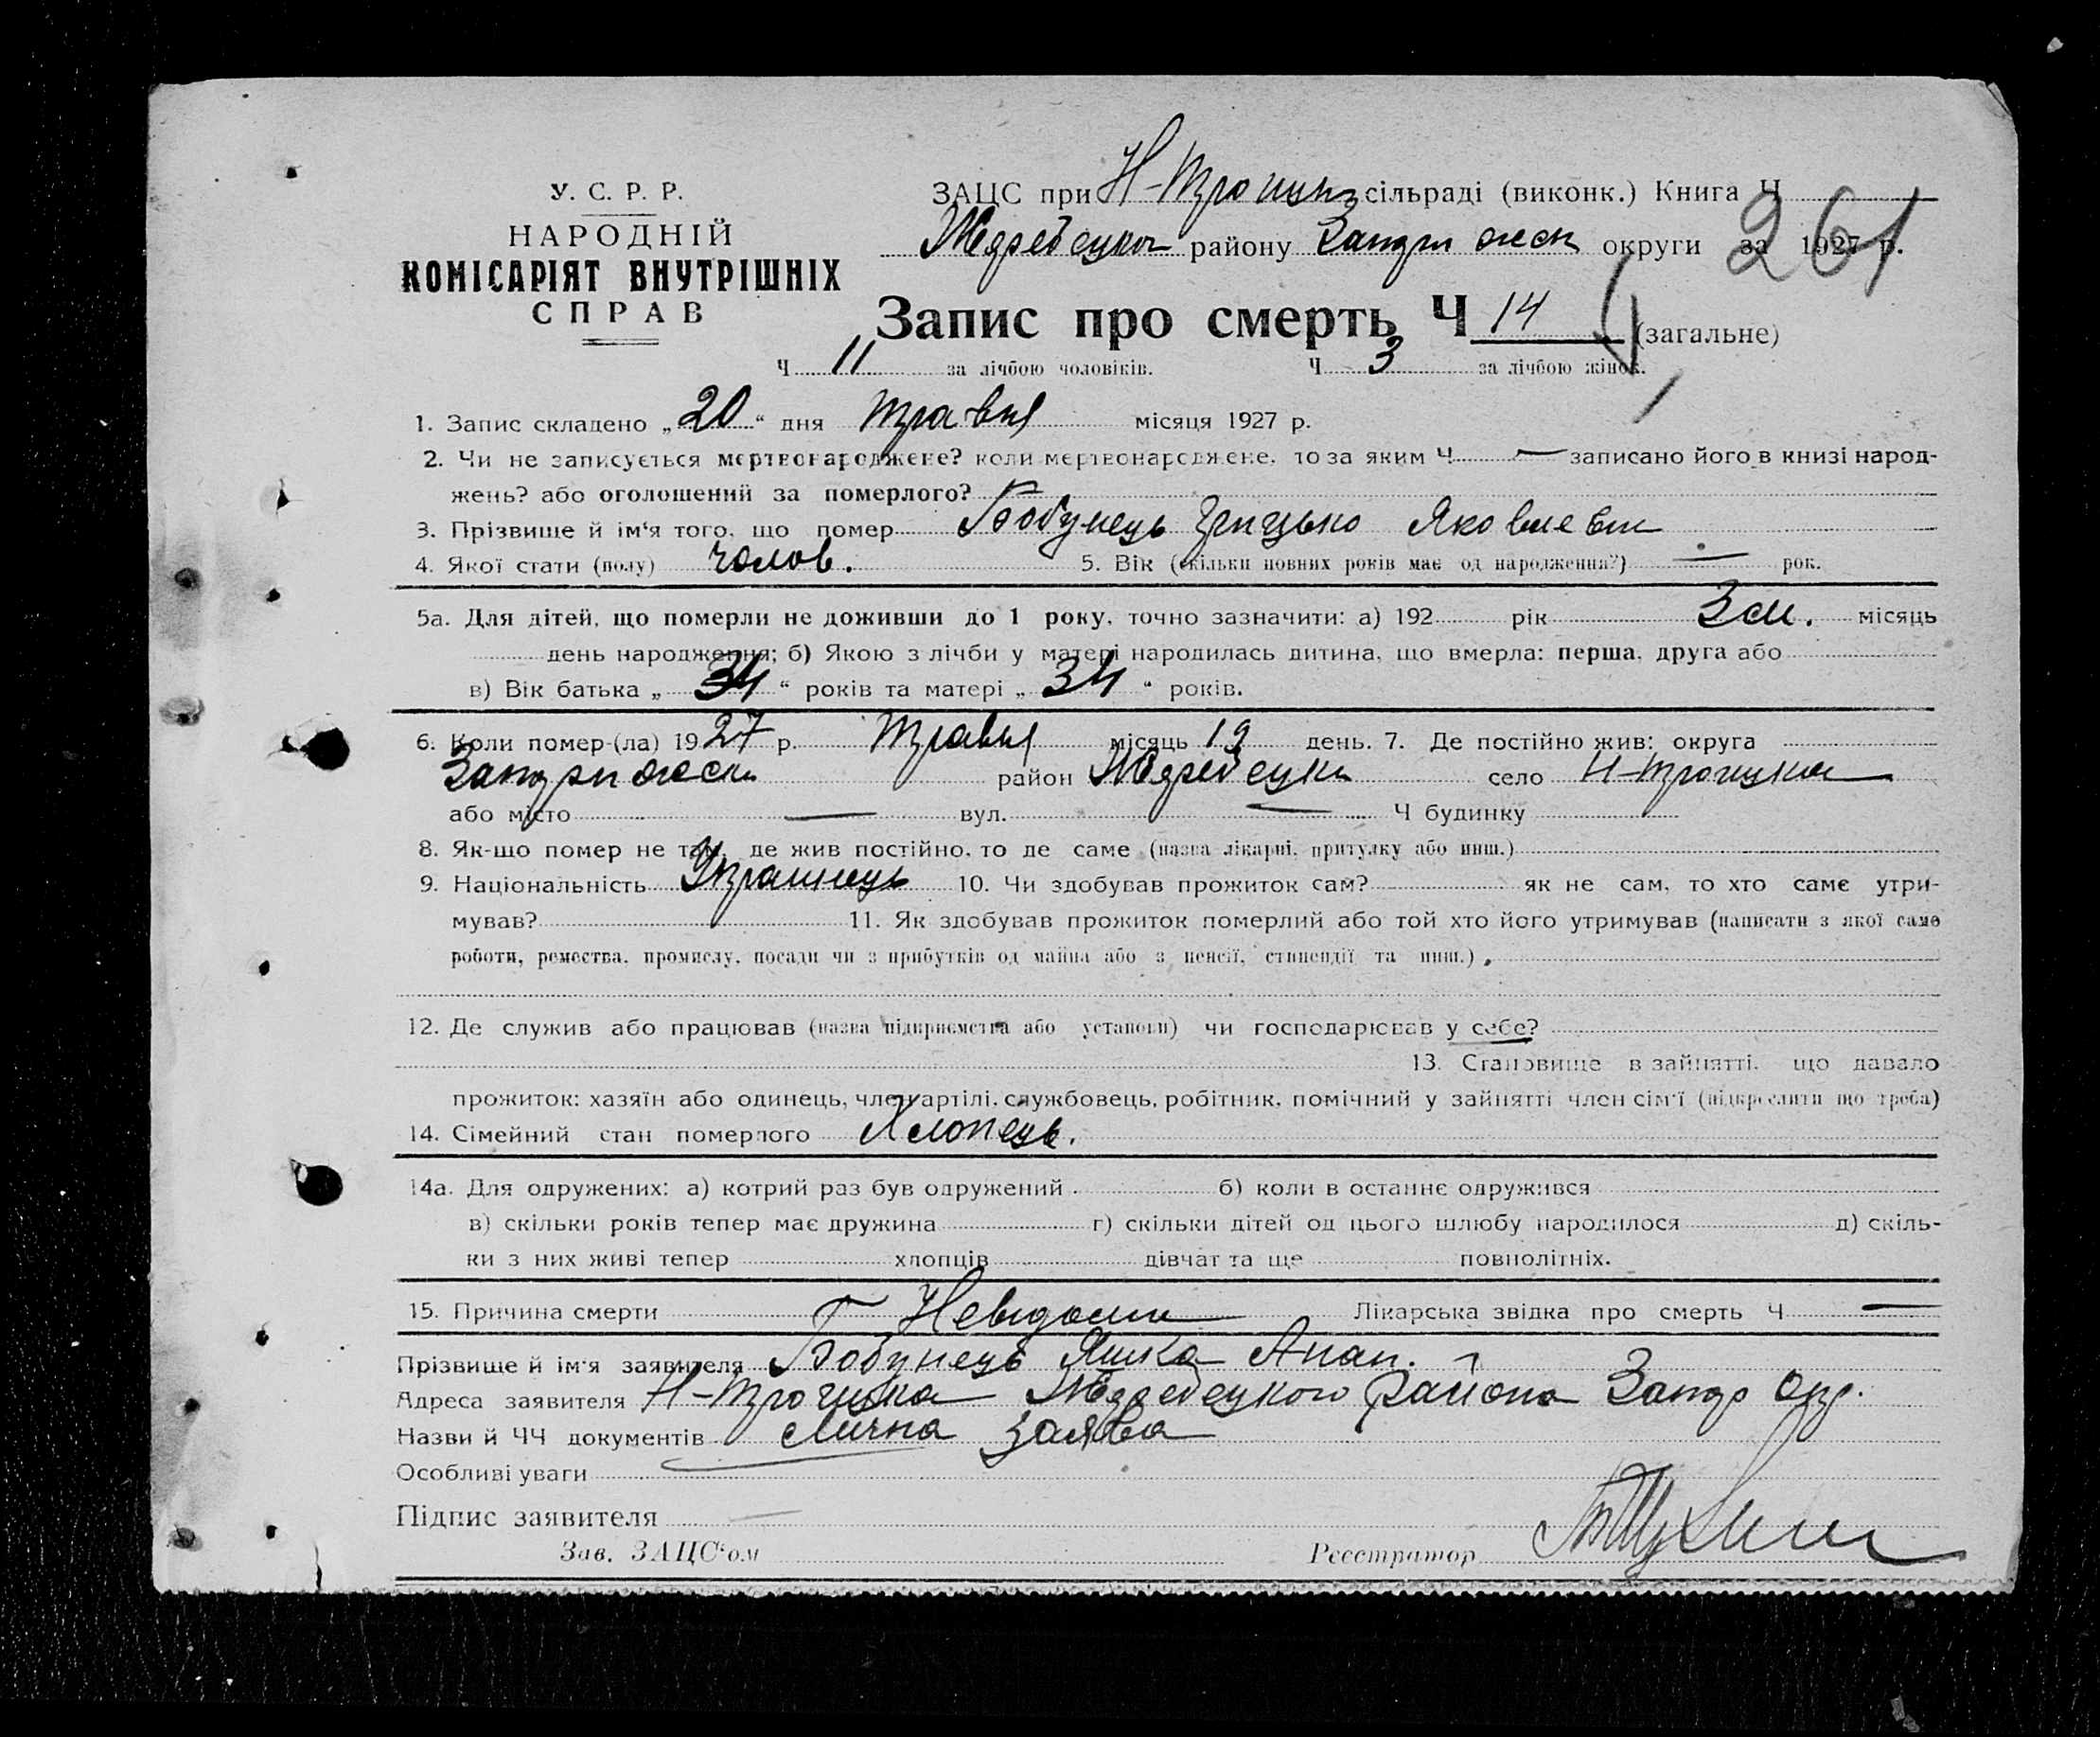 У. С. Р. Р.
НАРОДНІЙ
КОМІСАРІЯТ ВНУТРІШНІХ
СПРАВ
ЗАЦС при Н-Троицк сільраді (виконк.) Книга Ч
Жеребецком району Запоріжск округи за 1927 р.
261
Запис про смерть Ч 14 (загальне)
Ч 11 за лічбою чоловіків. Ч 3 за лічбою жінок.
1. Запис складено „20“ дня Травня місяця 1927 р.
2. Чи не записується мертвонароджене? коли мертвонароджене, то за яким Ч — записано його в книзі народ-
жень? або оголошений за померлого?
3. Прізвище й ім‘я того, що помер Бобунець Грицько Яковлевич
4. Якої стати (полу) чолов. 5. Вік (скільки повних років має од народження?) — рок.
5а. Для дітей, що померли не доживши до 1 року, точно зазначити: а) 192 рік 3 м. місяць
день народження; б) Якою з лічби у матері народилась дитина, що вмерла: перша, друга або
в) Вік батька „34“ років та матері „34“ років.
6. Коли помер-(ла) 1927 р. Травня місяць 19 день. 7. Де постійно жив: округа
Запоріжска район Жеребецки село Н-Троицка
або місто — вул. — Ч будинку
8. Як-що помер не там, де жив постійно, то де саме (назва лікарні, притулку або инш.)
9. Національність Українець 10. Чи здобував прожиток сам? як не сам, то хто саме утри-
мував? 11. Як здобував прожиток померлий або той хто його утримував (написати з якої само
роботи, ремества, промислу, посади чи з прибутків од майна або з пенсії, стипендії та инш.)
12. Де служив або працював (назва підприємства або установи) чи господарював у себе?
13. Становище в зайнятті, що давало
прожиток: хазяїн або одинець, член артілі, службовець, робітник, помічний у зайнятті член сім‘ї (підкреслити що треба)
14. Сімейний стан померлого Хлопець.
14а. Для одружених: а) котрий раз був одружений б) коли в останнє одружився
в) скільки років тепер має дружина г) скільки дітей од цього шлюбу народилося д) скіль-
ки з них живі тепер хлопців дівчат та ще повнолітніх.
15. Причина смерти Невідома Лікарська звідка про смерть Ч —
Прізвище й ім‘я заявителя Бобунець Яшка Апан.
Адреса заявителя Н-Троицка Жеребецкого Района Запор Окр.
Назви й ЧЧ документів Лична заява
Особливі уваги
Підпис заявителя —
Зав. ЗАЦС‘ом Реєстратор